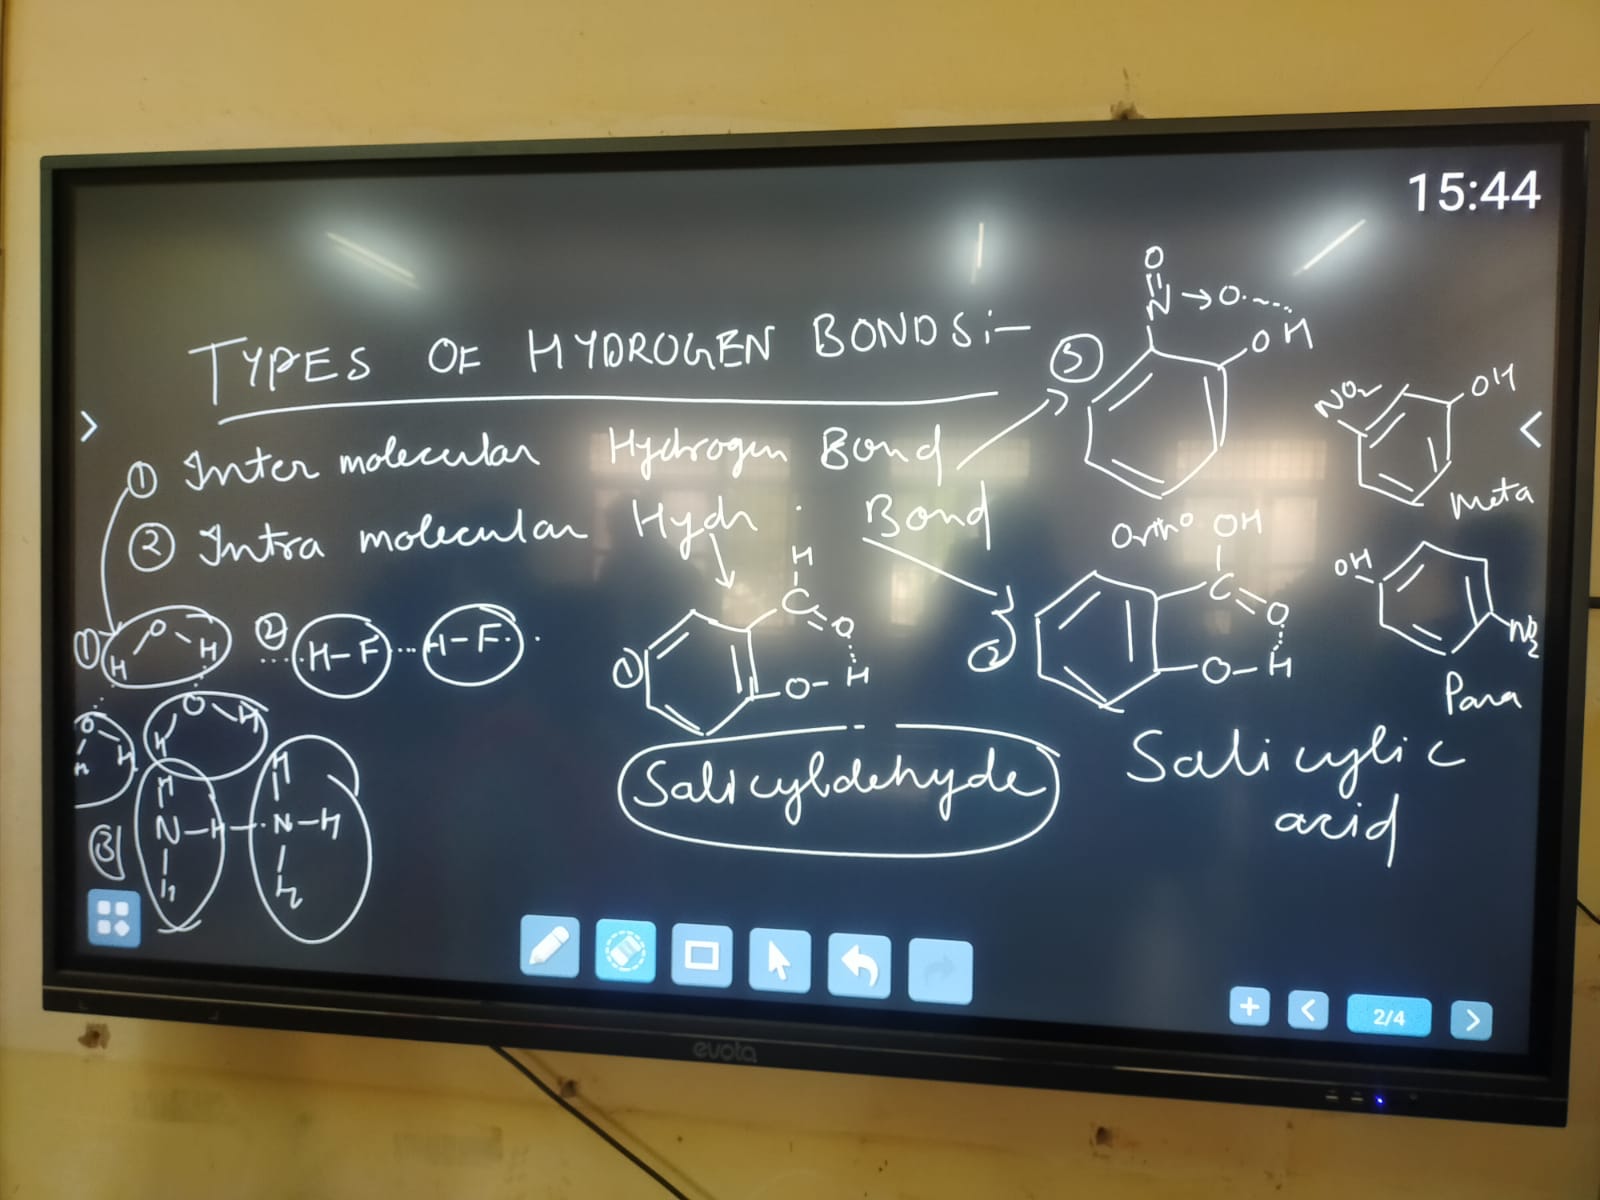 15:44
TYPES OF HYDROGEN BONDS:-
① Inter molecular Hydrogen Bond
② Intra molecular Hydr. Bond
①
O
H H
O
H H
O
H H
② H-F ... H-F
③
H H
N-H-·N-H
H H
①
H
C
O
O-H
Salicyldehyde
②
OH
C
O
O-H
Salicylic
acid
③
O
N→O
OH
Ortho
NO2 OH
Meta
OH
NO2
Para
2/4
evota